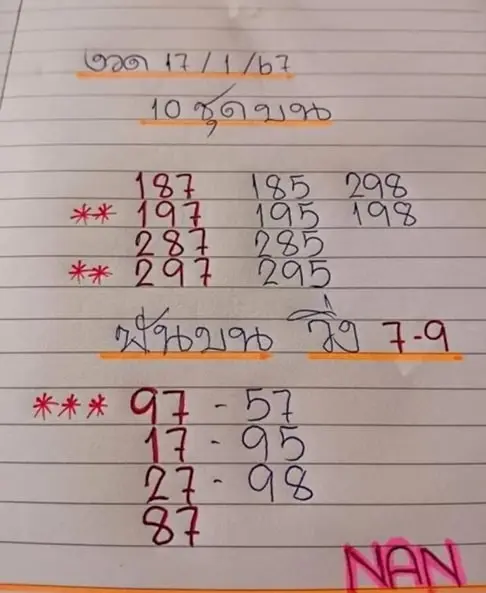 งวด 17/1/67
10 ชุดบน
187 185 298
** 197 195 198
287 285
** 297 295
ฟันบน วิ่ง 7-9
*** 97 - 57
17 - 95
27 - 98
87
NAN